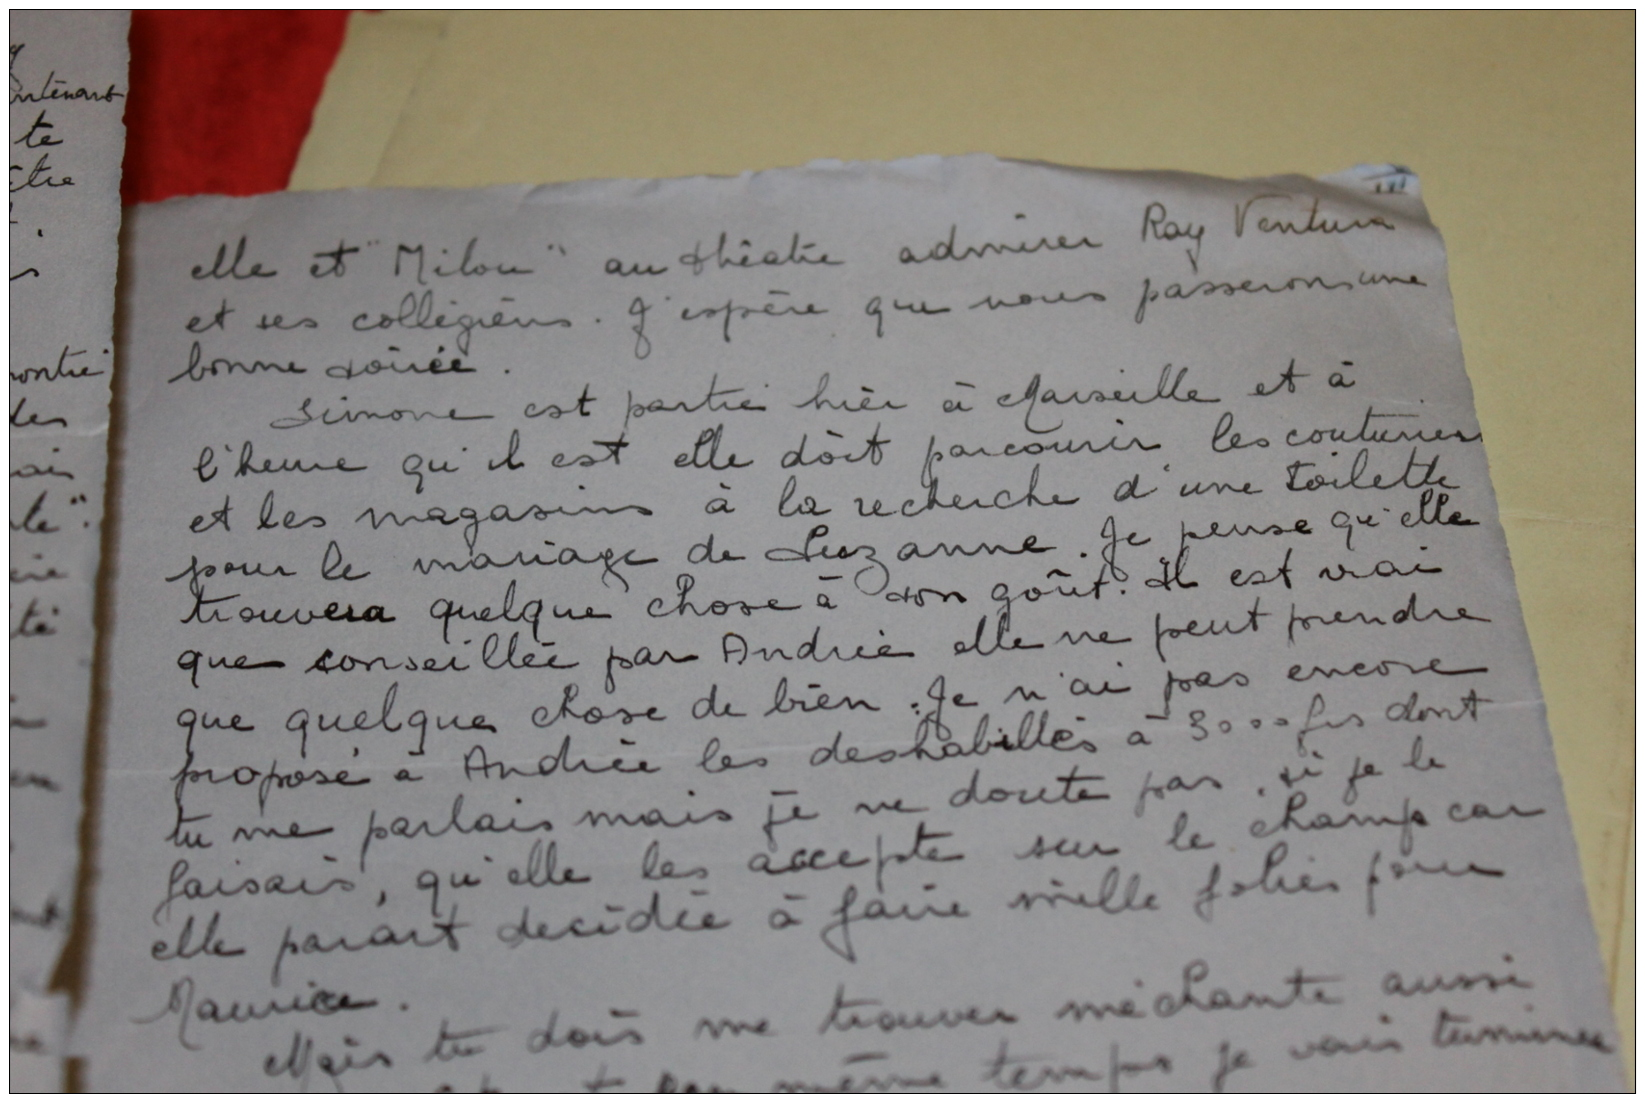 ntenant
te
être
montre
des
ais
le".
té
III
elle et "Milou" au théatre admirer Ray Ventura
et ses collégiens. J'espère que nous passerons une
bonne soirée.
Simone est partie hier à Marseille et à
l'heure qu'il est elle doit parcourir les couturiers
et les magasins à la recherche d'une toilette
pour le mariage de Suzanne. Je pense qu'elle
trouvera quelque chose à son goût. Il est vrai
que conseillée par Andrée elle ne peut prendre
que quelque chose de bien. Je n'ai pas encore
proposé à Andrée les deshabillés à 3000 frs dont
tu me parlais mais je ne doute pas, si je le
faisais, qu'elle les accepte sur le champ car
elle parait decidée à faire mille folies pour
Maurice.
Mais tu dois me trouver méchante aussi
et pour même temps je vais terminer